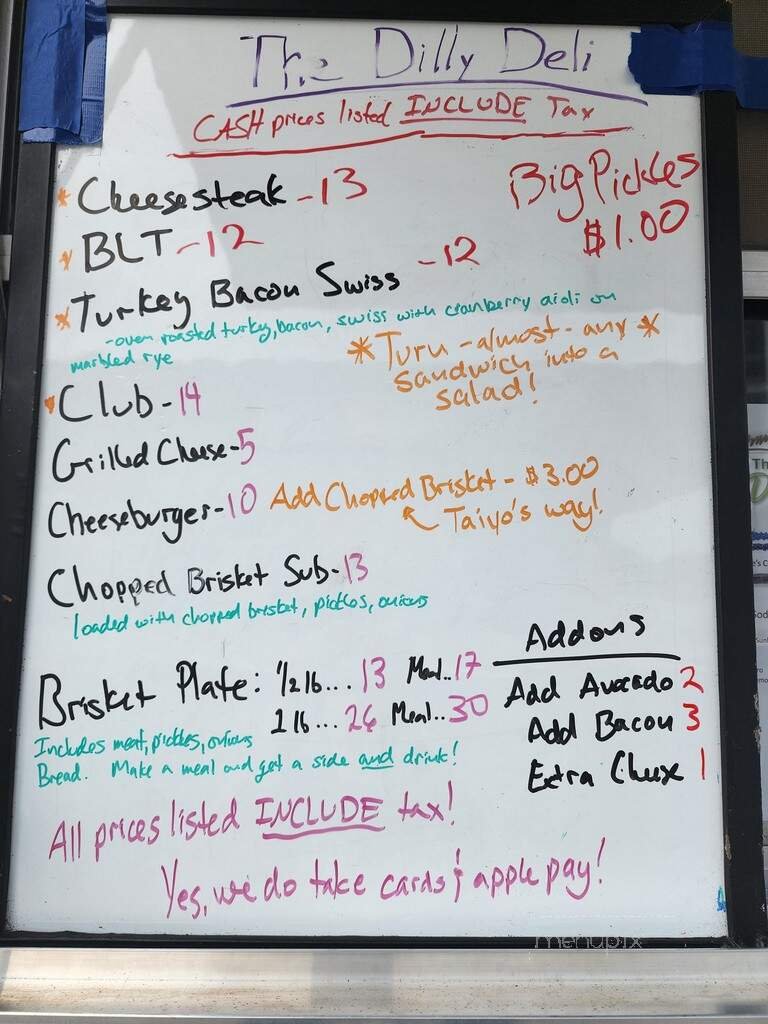 The Dilly Deli
CASH prices listed INCLUDE Tax
Big Pickles
$1.00
* Cheesesteak - 13
* BLT - 12
* Turkey Bacon Swiss - 12
- oven roasted turkey, bacon, swiss with cranberry aioli on
marbled rye
* Turn - almost - any *
sandwich into a
salad!
* Club - 14
Grilled Cheese - 5
Cheeseburger - 10 Add Chopped Brisket - $3.00
Taiyo's way!
Chopped Brisket Sub - 13
loaded with chopped brisket, pickles, onions
Brisket Plate: 1/2 lb... 13 Meal.. 17
1 lb... 26 Meal.. 30
Includes meat, pickles, onions
Bread. Make a meal and get a side and drink!
Addons
Add Avocado 2
Add Bacon 3
Extra 1
All prices listed INCLUDE tax!
Yes, we do take cards & apple pay!
menupix